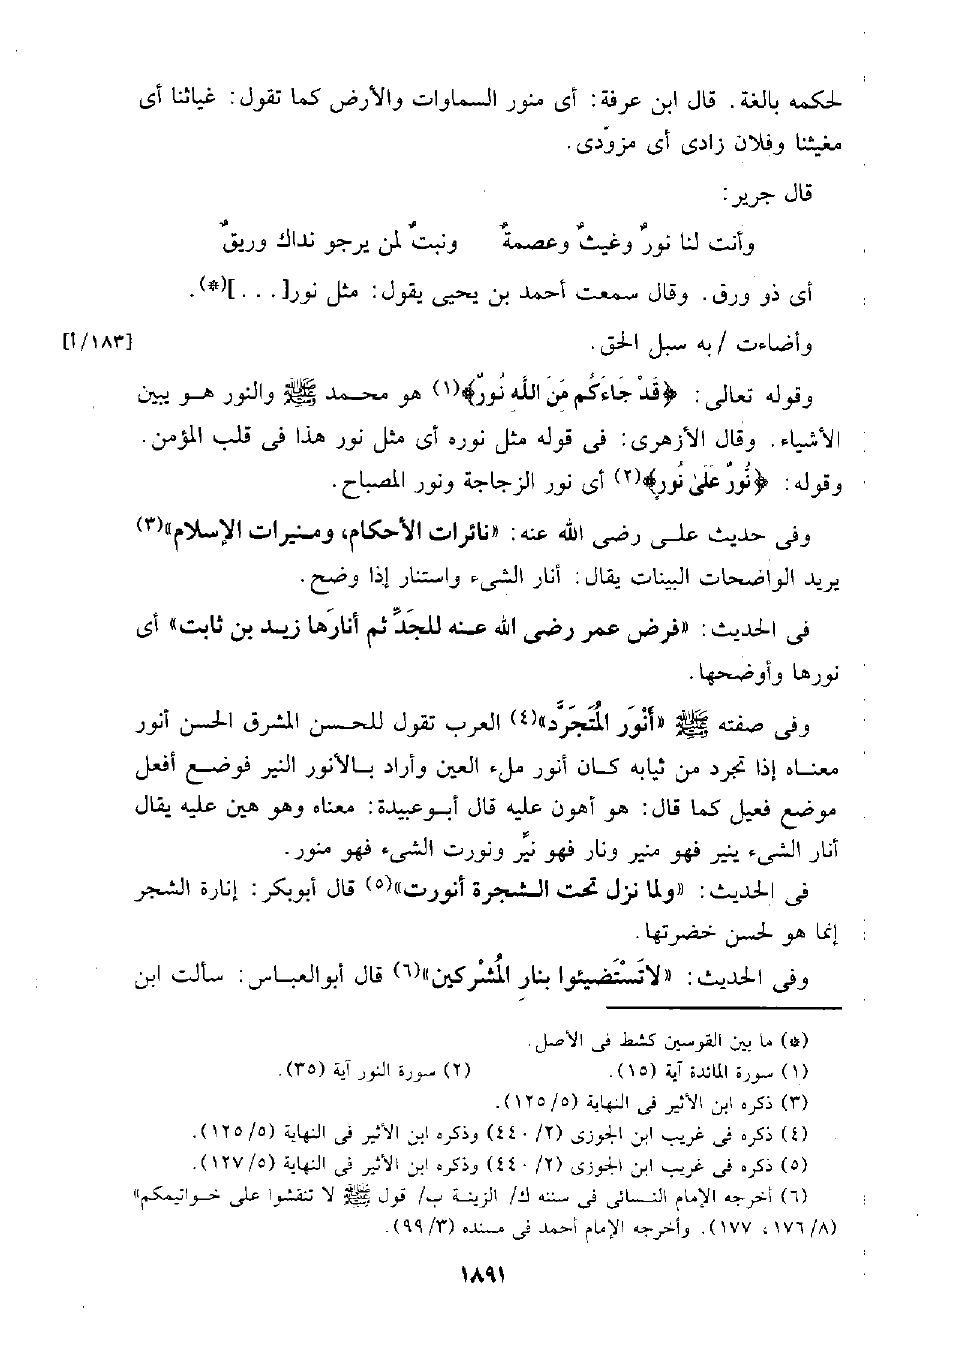 لحكمه بالغة. قال ابن عرفة: أى منور السماوات والأرض كما تقول: غياثنا أى
مغيثنا وفلان زادى أى مزوّدى.
قال جرير:
وأنت لنا نورٌ وغيثٌ وعصمةٌ ونبتٌ لمن يرجو نداك وريقٌ
أى ذو ورق. وقال سمعت أحمد بن يحيى يقول: مثل نور[...](*).
وأضاءت / به سبل الحق. [١٨٣/أ]
وقوله تعالى: ﴿قَدْ جَاءَكُم مِّنَ اللَّه نُورٌ﴾(١) هو محمد ﷺ والنور هو يبين
الأشياء. وقال الأزهرى: فى قوله مثل نوره أى مثل نور هذا فى قلب المؤمن.
وقوله: ﴿نُورٌ عَلَىٰ نُورٍ﴾(٢) أى نور الزجاجة ونور المصباح.
وفى حديث على رضى الله عنه: «نائرات الأحكام، ومنيرات الإسلام»(٣)
يريد الواضحات البينات يقال: أنار الشىء واستنار إذا وضح.
فى الحديث: «فرض عمر رضى الله عنه للجَدِّ ثم أنارَها زيد بن ثابت» أى
نورها وأوضحها.
وفى صفته ﷺ «أَنْوَر المُتَجَرَّد»(٤) العرب تقول للحسن المشرق الحسن أنور
معناه إذا تجرد من ثيابه كان أنور ملء العين وأراد بالأنور النير فوضع أفعل
موضع فعيل كما قال: هو أهون عليه قال أبوعبيدة: معناه وهو هين عليه يقال
أنار الشىء ينير فهو منير ونار فهو نيِّر ونورت الشىء فهو منور.
فى الحديث: «ولما نزل تحت الشجرة أنورت»(٥) قال أبوبكر: إنارة الشجر
إنما هو لحسن خضرتها.
وفى الحديث: «لاتَسْتَضيئوا بنار المُشْركين»(٦) قال أبوالعباس: سألت ابن
(*) ما بين القوسين كشط فى الأصل.
(١) سورة المائدة آية (١٥). (٢) سورة النور آية (٣٥).
(٣) ذكره ابن الأثير فى النهاية (١٢٥/٥).
(٤) ذكره فى غريب ابن الجوزى (٤٤٠/٢) وذكره ابن الأثير فى النهاية (١٢٥/٥).
(٥) ذكره فى غريب ابن الجوزى (٤٤٠/٢) وذكره ابن الأثير فى النهاية (١٢٧/٥).
(٦) أخرجه الإمام النسائى فى سننه ك/ الزينة ب/ قول ﷺ لا تنقشوا على خواتيمكم»
(١٧٦/٨، ١٧٧). وأخرجه الإمام أحمد فى مسنده (٩٩/٣).
١٨٩١